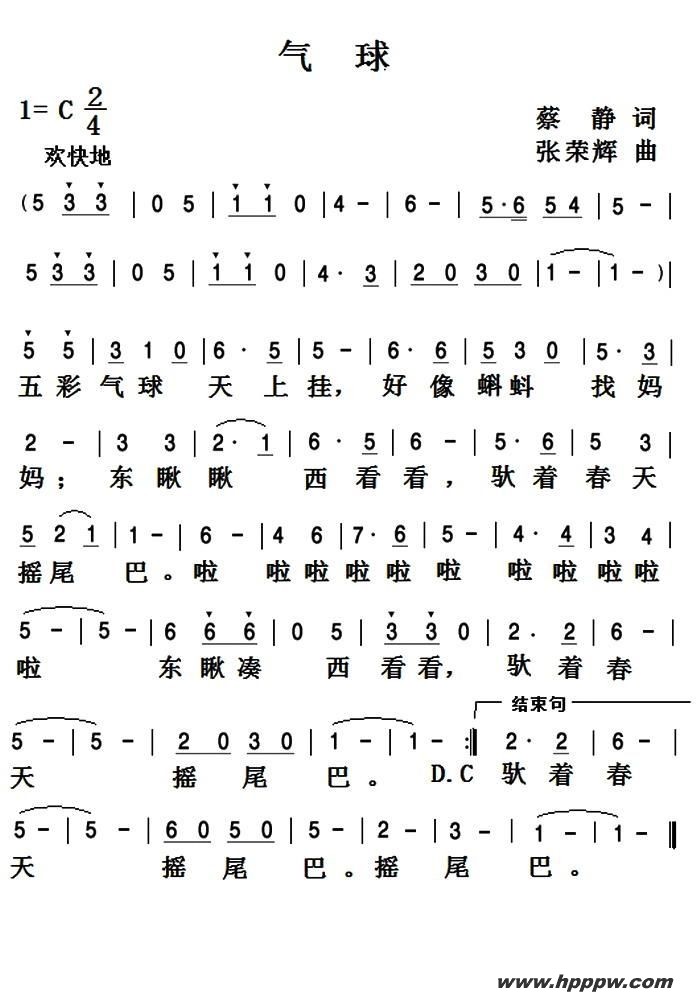 气 球
1= C 2/4
蔡 静 词
欢快地
张荣辉 曲
( 5 3 3 | 0 5 | 1 1 0 | 4 - | 6 - | 5· 6 5 4 | 5 - |
5 3 3 | 0 5 | 1 1 0 | 4· 3 | 2 0 3 0 | 1 - | 1 - ) |
5 5 | 3 1 0 | 6· 5 | 5 - | 6· 6 | 5 3 0 | 5· 3 |
五彩气球 天上挂, 好像蝌蚪 找妈
2 - | 3 3 | 2· 1 | 6· 5 | 6 - | 5· 6 | 5 3 |
妈; 东瞅瞅 西看看, 驮着春天
5 2 1 | 1 - | 6 - | 4 6 | 7· 6 | 5 - | 4· 4 | 3 4 |
摇尾 巴。啦 啦啦啦啦 啦 啦啦啦啦
5 - | 5 - | 6 6 6 | 0 5 | 3 3 0 | 2· 2 | 6 - |
啦 东瞅凑 西看看, 驮着春
结束句
5 - | 5 - | 2 0 3 0 | 1 - | 1 - :| 2· 2 | 6 - |
天 摇尾巴。 D.C 驮着春
5 - | 5 - | 6 0 5 0 | 5 - | 2 - | 3 - | 1 - | 1 - ‖
天 摇尾巴。摇尾巴。
www.hpppw.com